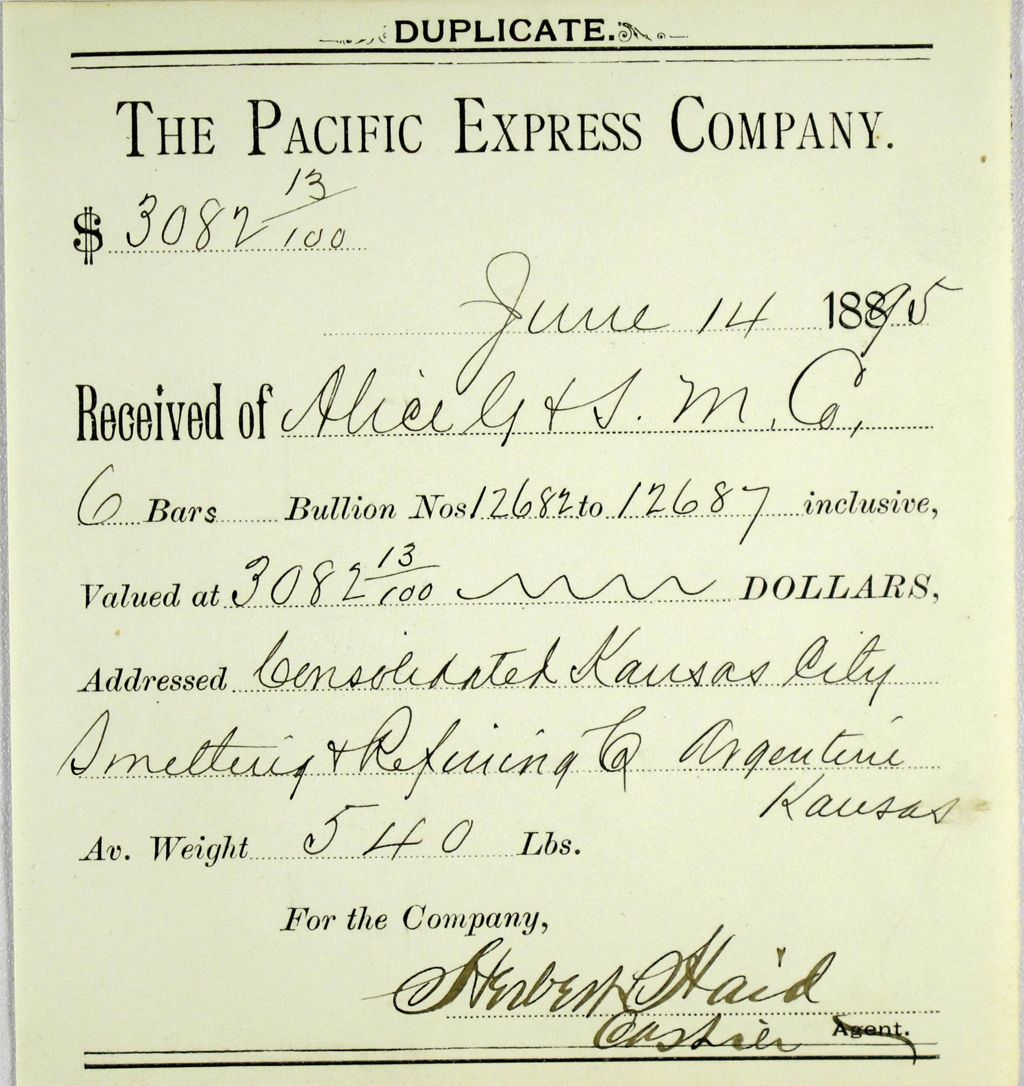 DUPLICATE.
THE PACIFIC EXPRESS COMPANY.
$ 3082 13/100
June 14 1895
Received of Alice G & S. M. Co,
6 Bars Bullion Nos 12682 to 12687 inclusive,
Valued at 3082 13/100 DOLLARS,
Addressed Consolidated Kansas City
Smelting & Refining Co Argentine
Kansas
Av. Weight 540 Lbs.
For the Company,
Herbert S Haid
Cashier Agent.